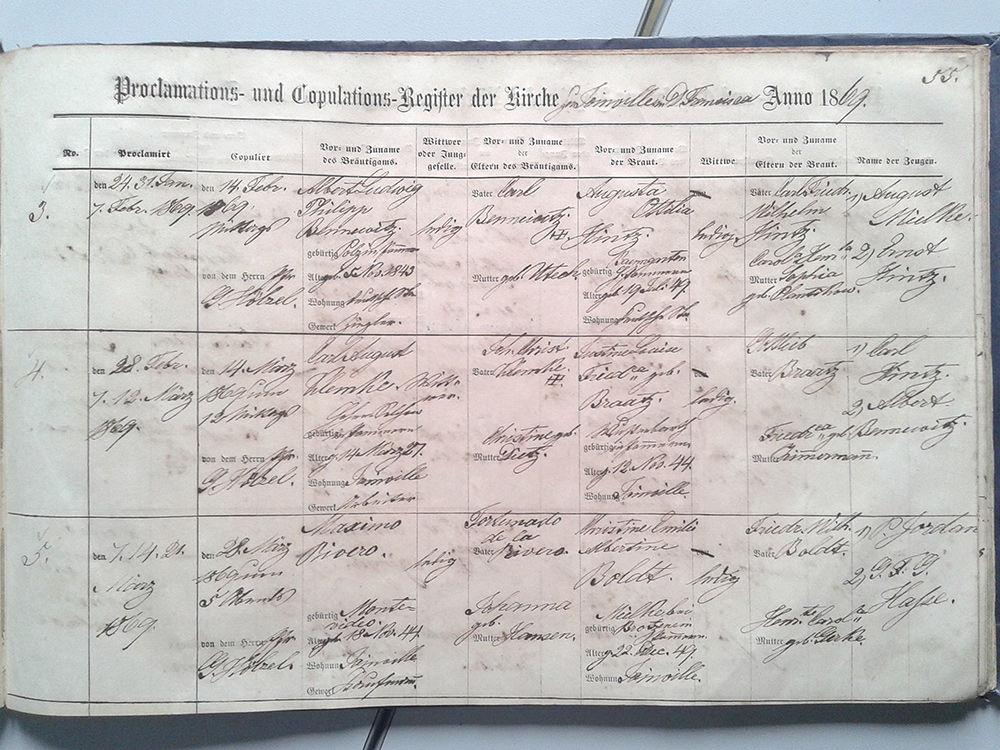 55.
Proclamations- und Copulations-Register der Kirche zu Joinville D. Francisca Anno 1869.
No. Proclamirt Copulirt Vor- und Zuname des Bräutigams. Wittwer oder Junggeselle. Vor- und Zuname der Eltern des Bräutigams. Vor- und Zuname der Braut. Wittwe. Vor- und Zuname der Eltern der Braut. Name der Zeugen.
3.
den 24. 31. Jan.
7. Febr. 1869.
den 14. Febr.
1869.
Mittags
von dem Herrn Pfr.
G. Hölzel.
Albert Ludwig
Philipp
Bennewitz.
gebürtig Polzin Pommern
Alter geb. 5 Nov. 1843
Wohnung
Gewerk Ziegler.
ledig
Vater Carl
Bennewitz.
Mutter geb. Utech.
Augusta
Ottilia
Hintz.
gebürtig Baumgarten
Pommern
Alter geb. 19 Juli 49.
Wohnung
ledig
Vater Carl Friedr.
Wilhelm
Hintz.
Mutter Sophia
geb.
1) August
Mielke.
2) Ernst
Hintz.
4.
den 28. Febr.
7. 12. März
1869.
den 14. März
1869 um
12 Mittags
von dem Herrn Pfr.
G. Hölzel.
Carl August
Klemke.
gebürtig Pommern
Alter g. 14 März 27.
Wohnung Joinville
Gewerk Arbeiter
Wittwer.
Joh. Christ.
Vater Klemke.
Christine geb.
Mutter Tietz.
Justine Luise
Friedr. geb.
Braatz.
gebürtig Pommern
Alter g. 12 Nov. 44.
Wohnung Joinville.
ledig.
Gottlieb
Vater Braatz
Friedr. geb.
Mutter Zimmermann.
1) Carl
Hintz.
2) Albert
Bennewitz.
5.
den 7. 14. 21.
März
1869.
den 28. März
1869 um
5 Abends
von dem Herrn Pfr.
G. Hölzel.
Maximo
Rivero.
gebürtig Monte-
video.
Alter geb. 18 Nov. 44.
Wohnung Joinville
Gewerk Kaufmann.
ledig
Fortunado
de la
Vater Rivero.
Johanna
geb.
Mutter Hansen.
Christine Emilie
Albertine
Boldt.
gebürtig
Pommern
Alter g. 22. Dec. 49.
Wohnung Joinville.
ledig
Friedr. Wilh.
Vater Boldt.
Henr. Carol.
Mutter geb. Gerke.
1) P. Jordan
2) G. F. G.
Hasse.